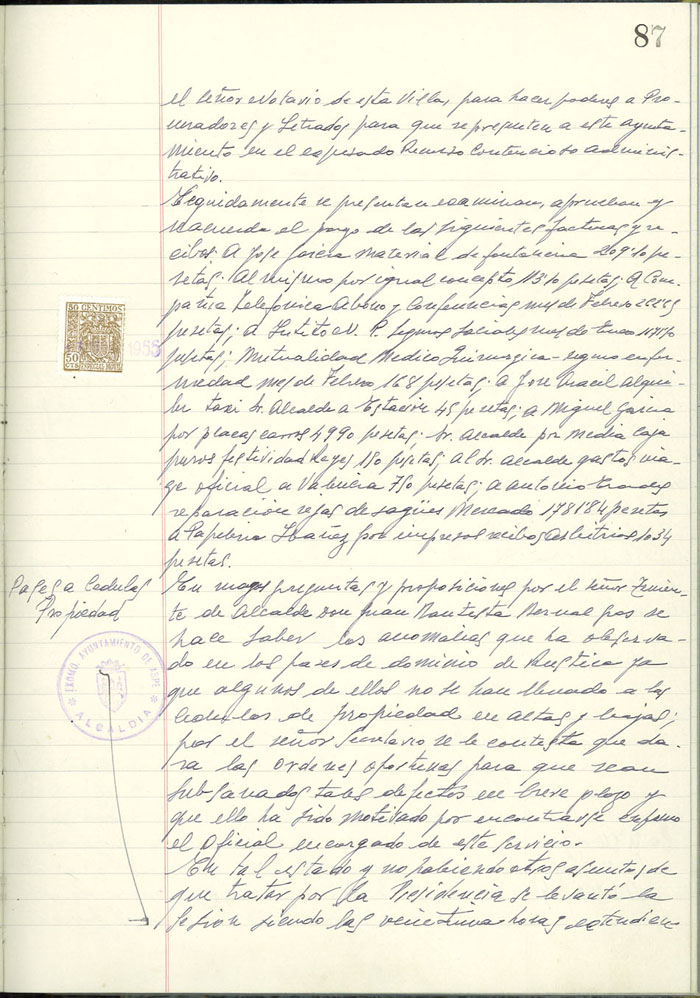 87
el señor Notario de esta Villa, para hacer poderes a Pro-
curadores y Letrados para que representen a este Ayunta-
miento en el expresado Recurso Contencioso adminis-
trativo.
Seguidamente se presentan examinan, aprueban y
acuerda el pago de las siguientes facturas y re-
cibos: A Jose Garcia material de fontaneria 209'10 pe-
setas; Al mismo por igual concepto 113'10 pesetas; A Com-
pañia Telefonica Abono y Conferencias mes de Febrero
pesetas; A Instituto N. P. seguros sociales mes de Enero
pesetas; Mutualidad Medico Quirurgica - seguro enfer-
medad mes de Febrero 168 pesetas; a Jose Maciá alqui-
ler taxi Sr. Alcalde a Estación 45 pesetas; a Miguel Garcia
por placas carros 4990 pesetas; Sr. Alcalde por media caja
puros festividad Reyes 150 pesetas; Al Sr. Alcalde gastos via-
ge oficial a Valencia 750 pesetas; a Antonio
reparación rejas desagües Mercado 1781'84 pesetas
a Papeleria Ibañez por impresos recibos arbitrios 1034
pesetas.
Pases a Cedulas
Propiedad
En ruegos preguntas y proposiciones por el señor Tenien-
te de Alcalde Don Juan Bautista Bernal se
hace saber las anomalias que ha observa-
do en los pases de dominio de Rustica ya
que algunos de ellos no se han llevado a las
Cedulas de propiedad en altas y bajas;
por el señor Secretario se le contesta que da-
ra las ordenes oportunas para que sean
subsanados tales defectos en breve plazo y
que ello ha sido motivado por encontrarse enfermo
el Oficial encargado de este servicio.
En tal estado y no habiendo otros asuntos de
que tratar por la Presidencia se levantó la
sesion siendo las veintiuna horas extendien-
50 CENTIMOS
50
CTS
ESPECIAL MOVIL
1955
EXCMO. AYUNTAMIENTO DE ASPE
ALCALDIA